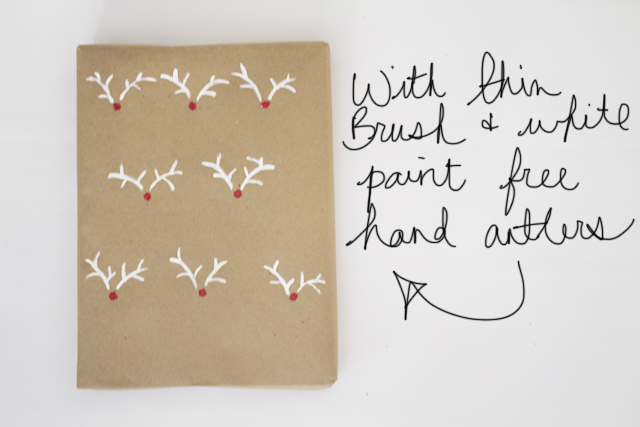 With thin
Brush & white
paint free
hand antlers